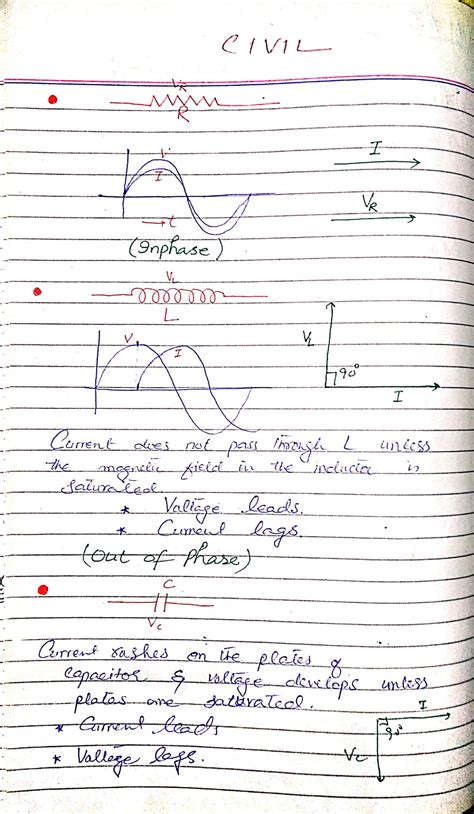 CIVIL
VR
R
V
I
I
VR
→ t
(Inphase)
VL
L
V
I
VL
90°
I
Current does not pass through L unless
the magnetic field in the inductor is
saturated
* Voltage leads.
* Current lags.
(Out of Phase)
C
Vc
Current rushes on the plates of
capacitor & voltage develops unless
plates are saturated.
* Current leads
* Voltage lags.
I
90°
Vc